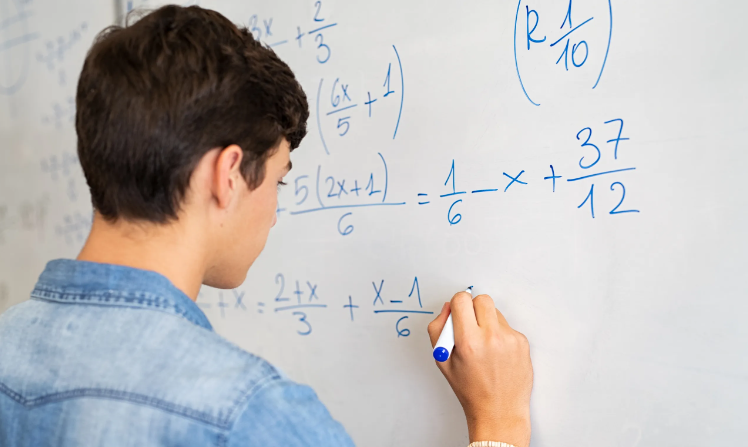 3x + 2/3
(R 1/10)
(6x/5 + 1)
- 5(2x+1)/6 = 1/6 - x + 37/12
+ x = 2+x/3 + x-1/6